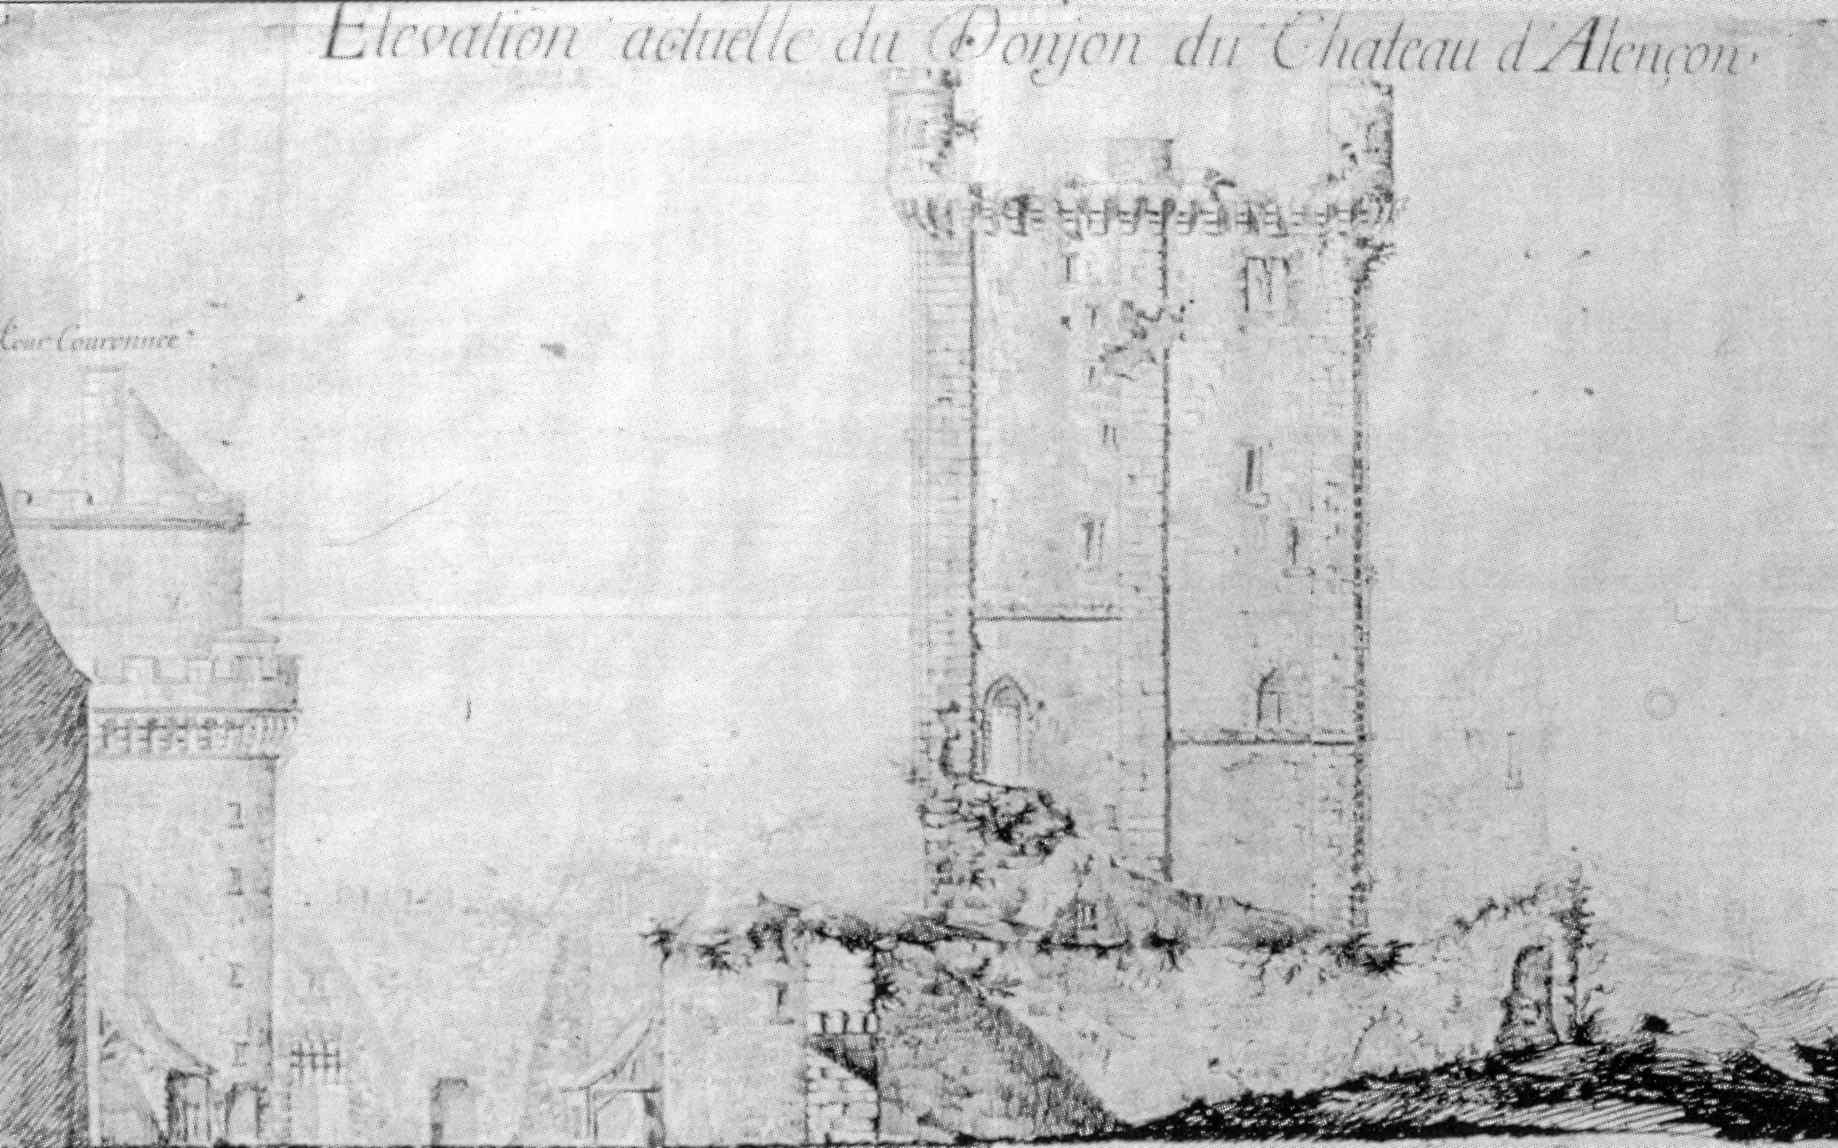 Elevation actuelle du Donjon du Chateau d'Alençon.
Tour Couronnee